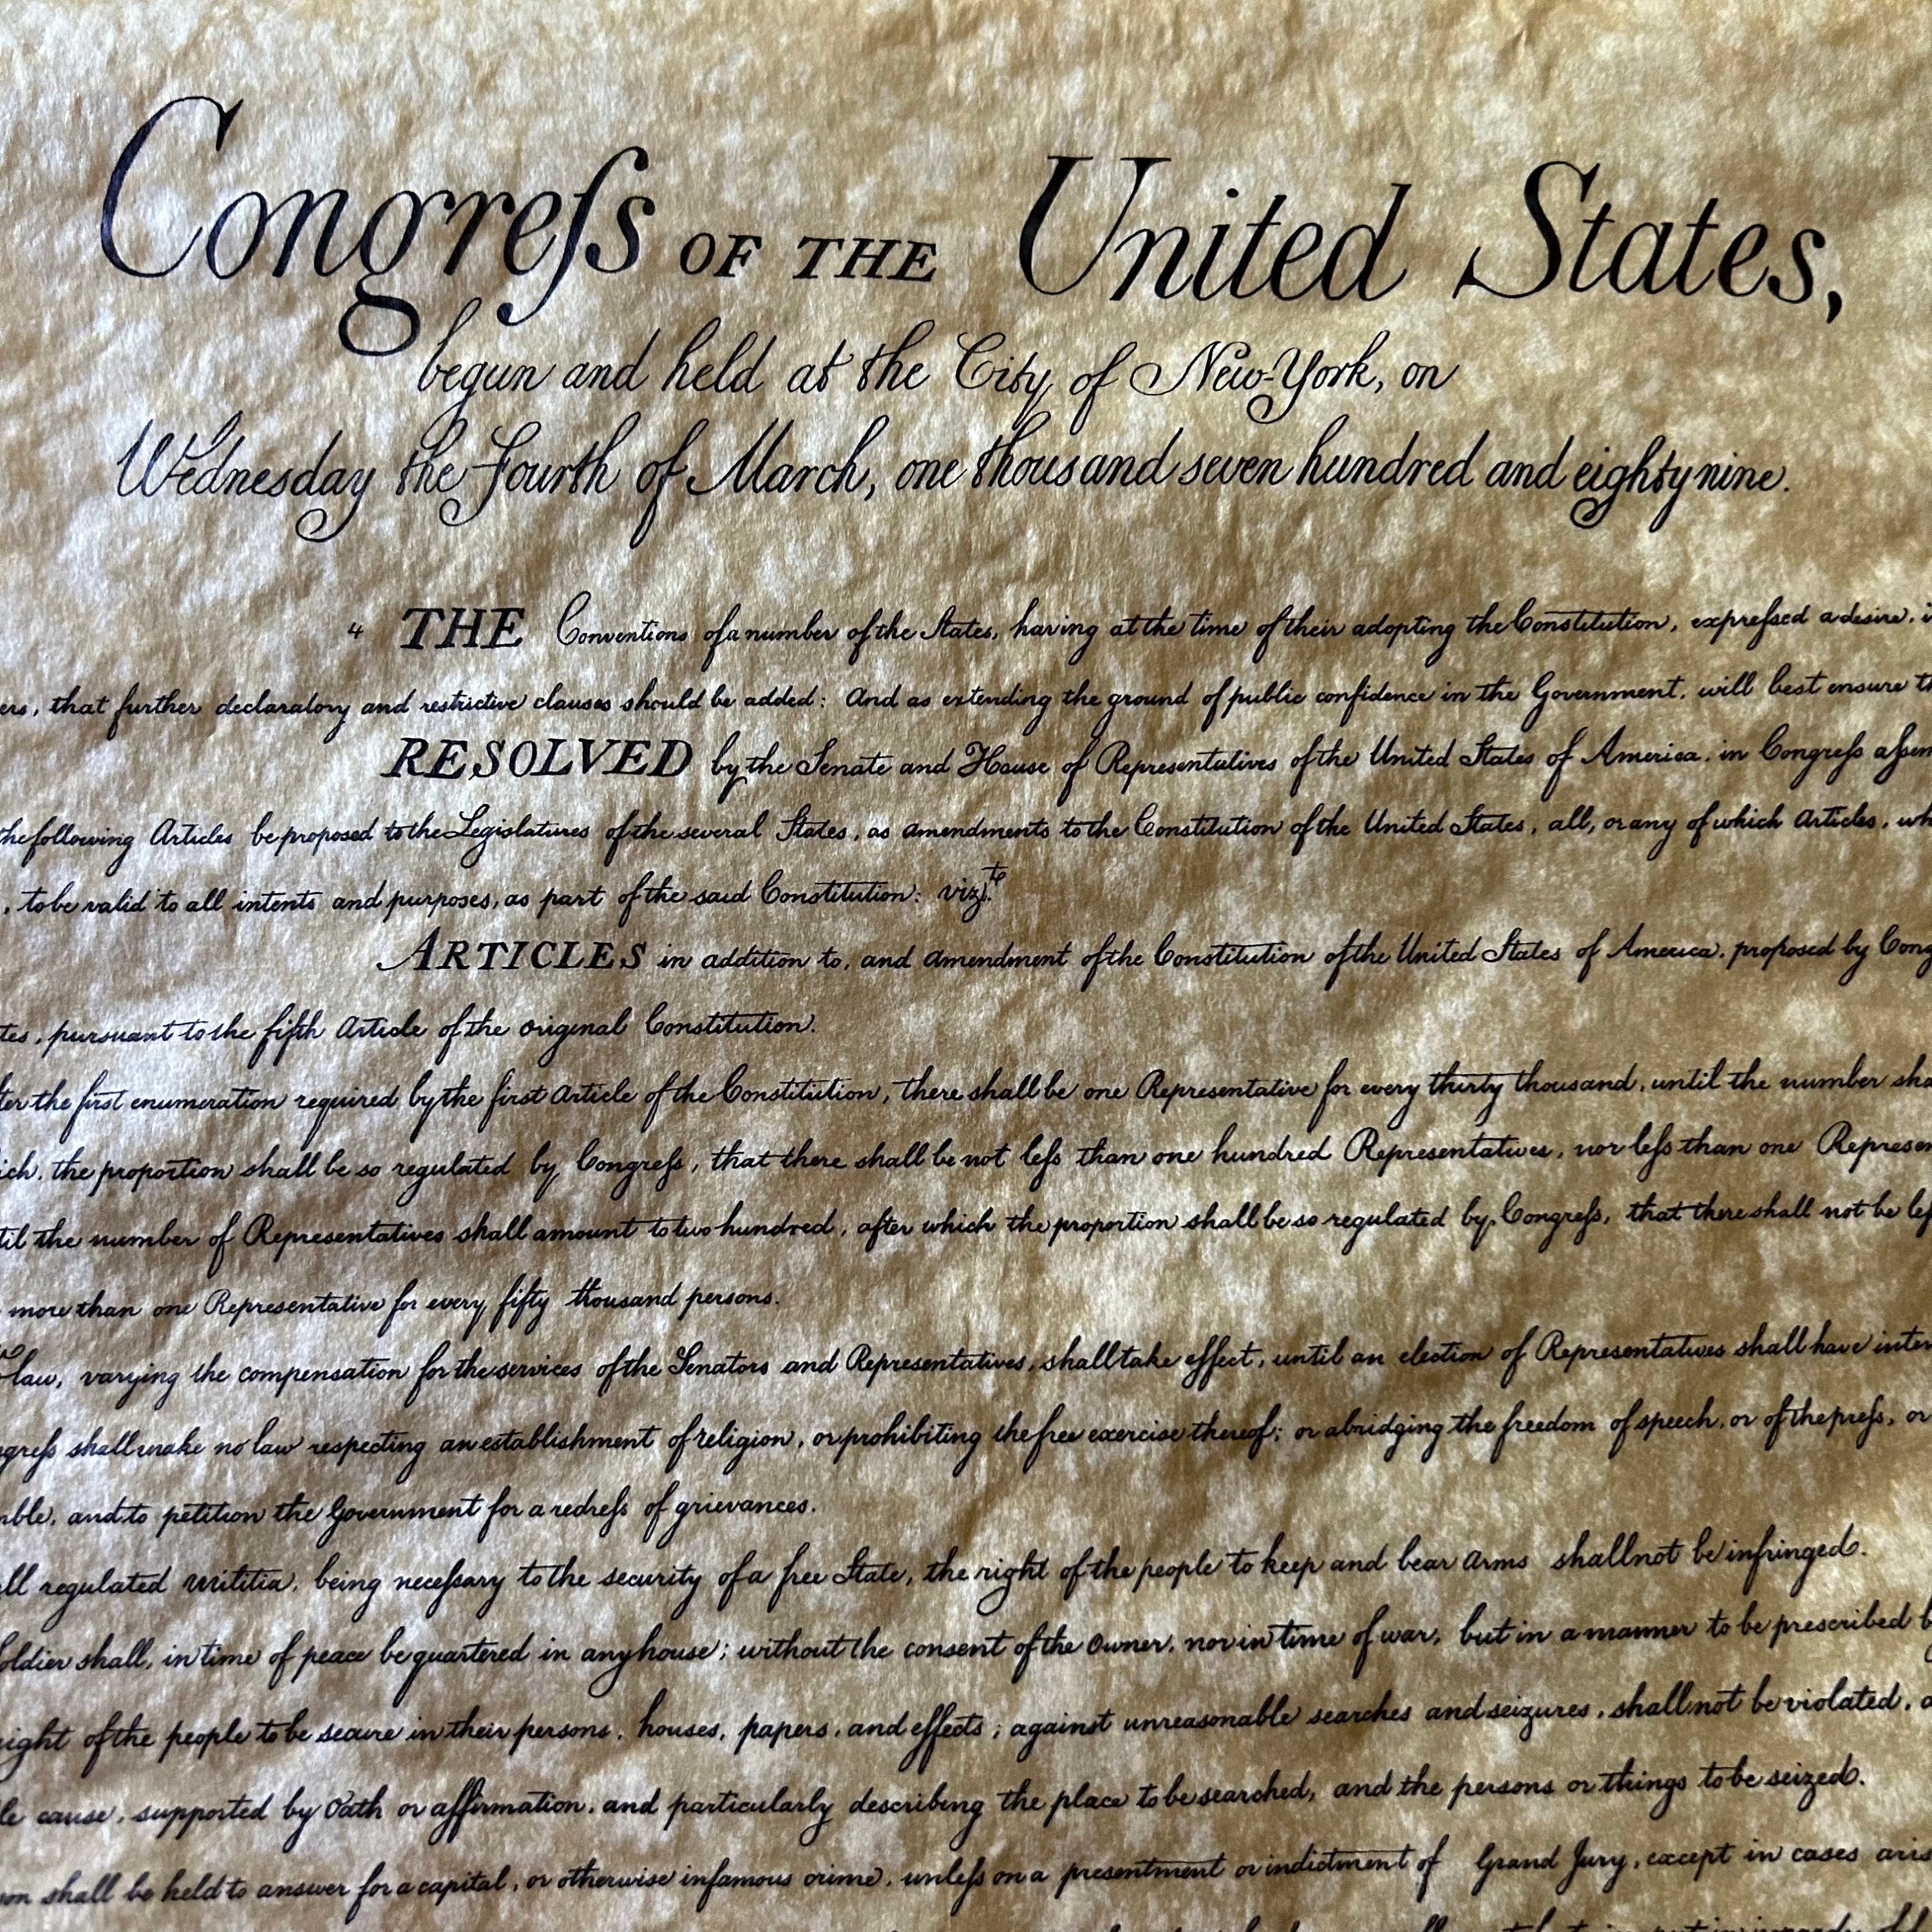 Congreſs OF THE United States,
begun and held at the City of New-York, on
Wednesday the Fourth of March, one thousand seven hundred and eighty nine.
THE Conventions of a number of the States, having at the time of their adopting the Constitution, expreſsed a desire, i
ers, that further declaratory and restrictive clauses should be added: And as extending the ground of public confidence in the Government, will best ensure t
RESOLVED by the Senate and House of Representatives of the United States of America, in Congreſs aſsem
the following Articles be proposed to the Legislatures of the several States, as amendments to the Constitution of the United States, all, or any of which Articles, wh
, to be valid to all intents and purposes, as part of the said Constitution: vizt.
ARTICLES in addition to, and amendment of the Constitution of the United States of America, proposed by Cong
tes, pursuant to the fifth Article of the original Constitution.
ter the first enumeration required by the first Article of the Constitution, there shall be one Representative for every thirty thousand, until the number sha
ich, the proportion shall be so regulated by Congreſs, that there shall be not leſs than one hundred Representatives, nor leſs than one Represen
til the number of Representatives shall amount to two hundred, after which the proportion shall be so regulated by Congreſs, that there shall not be leſ
more than one Representative for every fifty thousand persons.
law, varying the compensation for the services of the Senators and Representatives, shall take effect, until an election of Representatives shall have inter
ngreſs shall make no law respecting an establishment of religion, or prohibiting the free exercise thereof; or abridging the freedom of speech, or of the preſs, or
mble, and to petition the Government for a redreſs of grievances.
ll regulated Militia, being neceſsary to the security of a free State, the right of the people to keep and bear Arms shall not be infringed.
oldier shall, in time of peace be quartered in any house; without the consent of the Owner, nor in time of war, but in a manner to be prescribed b
ight of the people to be secure in their persons, houses, papers, and effects; against unreasonable searches and seizures, shall not be violated, a
le cause, supported by Oath or affirmation, and particularly describing the place to be searched, and the persons or things to be seized.
son shall be held to answer for a capital, or otherwise infamous crime, unleſs on a presentment or indictment of Grand Jury, except in cases aris